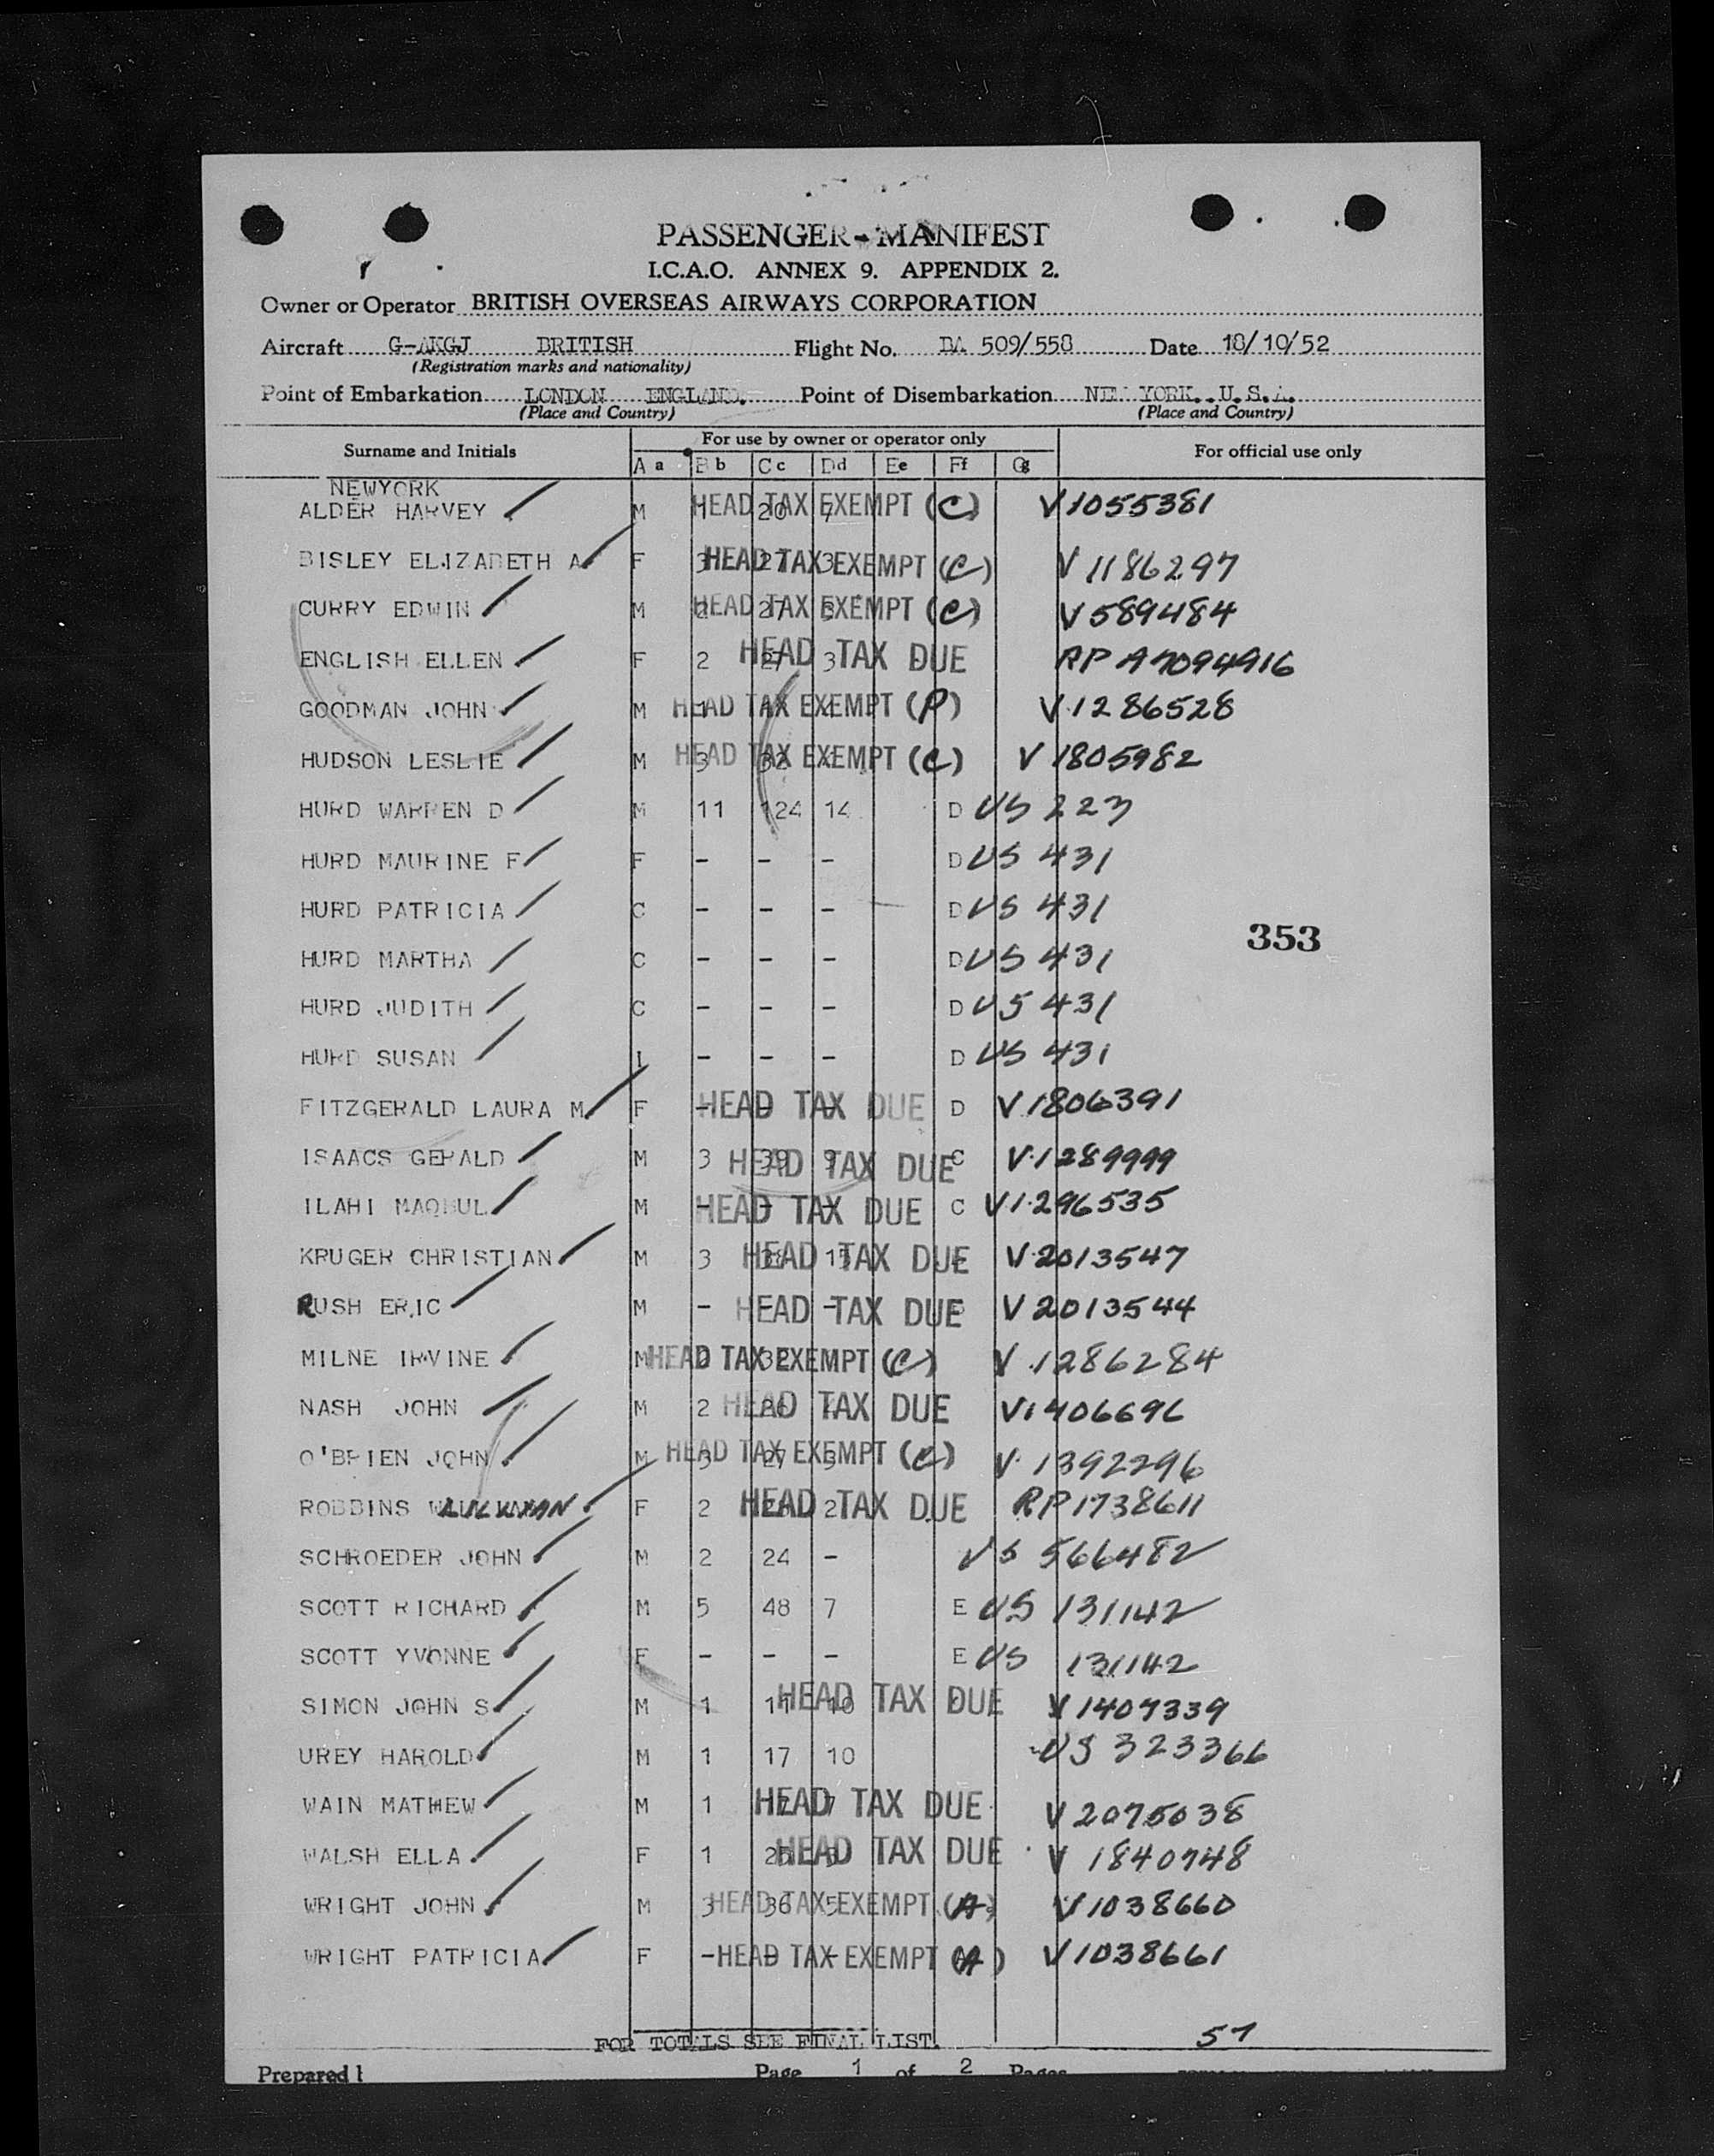 PASSENGER-MANIFEST
I.C.A.O. ANNEX 9. APPENDIX 2.
Owner or Operator BRITISH OVERSEAS AIRWAYS CORPORATION
Aircraft G-AKGJ BRITISH Flight No. BA 509/558 Date 18/10/52
(Registration marks and nationality)
Point of Embarkation LONDON ENGLAND. Point of Disembarkation NEW YORK. U.S.A.
(Place and Country) (Place and Country)
Surname and Initials For use by owner or operator only For official use only
A a B b C c D d E e F f G g
NEWYORK
ALDER HARVEY M 1 20 7 HEAD TAX EXEMPT (C) V1055381
BISLEY ELIZABETH A F 3 27 3 HEAD TAX EXEMPT (C) V 1186297
CURRY EDWIN M 27 HEAD TAX EXEMPT (C) V 589484
ENGLISH ELLEN F 2 27 3 HEAD TAX DUE RP A7094916
GOODMAN JOHN M 1 HEAD TAX EXEMPT (P) V 1286528
HUDSON LESLIE M 3 32 HEAD TAX EXEMPT (C) V 1805982
HURD WARREN D M 11 124 14 D US 223
HURD MAURINE F F - - - D US 431
HURD PATRICIA C - - - D US 431
HURD MARTHA C - - - D US 431
HURD JUDITH C - - - D US 431
HURD SUSAN I - - - D US 431
353
FITZGERALD LAURA M F - - - HEAD TAX DUE D V 1806391
ISAACS GERALD M 3 39 9 HEAD TAX DUE C V 1289999
ILAHI MAQBUL M - - - HEAD TAX DUE C V 1296535
KRUGER CHRISTIAN M 3 38 15 HEAD TAX DUE V 2013547
RUSH ERIC M - - - HEAD TAX DUE V 2013544
MILNE IRVINE M 32 HEAD TAX EXEMPT (C) V 1286284
NASH JOHN M 2 26 HEAD TAX DUE V1406696
O'BRIEN JOHN M 3 27 3 HEAD TAX EXEMPT (C) V 1392296
ROBBINS F 2 2 HEAD TAX DUE RP1738611
SCHROEDER JOHN M 2 24 - US 566482
SCOTT RICHARD M 5 48 7 E US 131142
SCOTT YVONNE F - - - E US 131142
SIMON JOHN S M 1 17 10 HEAD TAX DUE V 1407339
UREY HAROLD M 1 17 10 US 323366
WAIN MATHEW M 1 17 7 HEAD TAX DUE V 2075038
WALSH ELLA F 1 25 HEAD TAX DUE V 1840748
WRIGHT JOHN M 3 36 5 HEAD TAX EXEMPT (A) V1038660
WRIGHT PATRICIA F - - - HEAD TAX EXEMPT (A) V1038661
FOR TOTALS SEE FINAL LIST. 57
Prepared Page 1 of 2 Pages